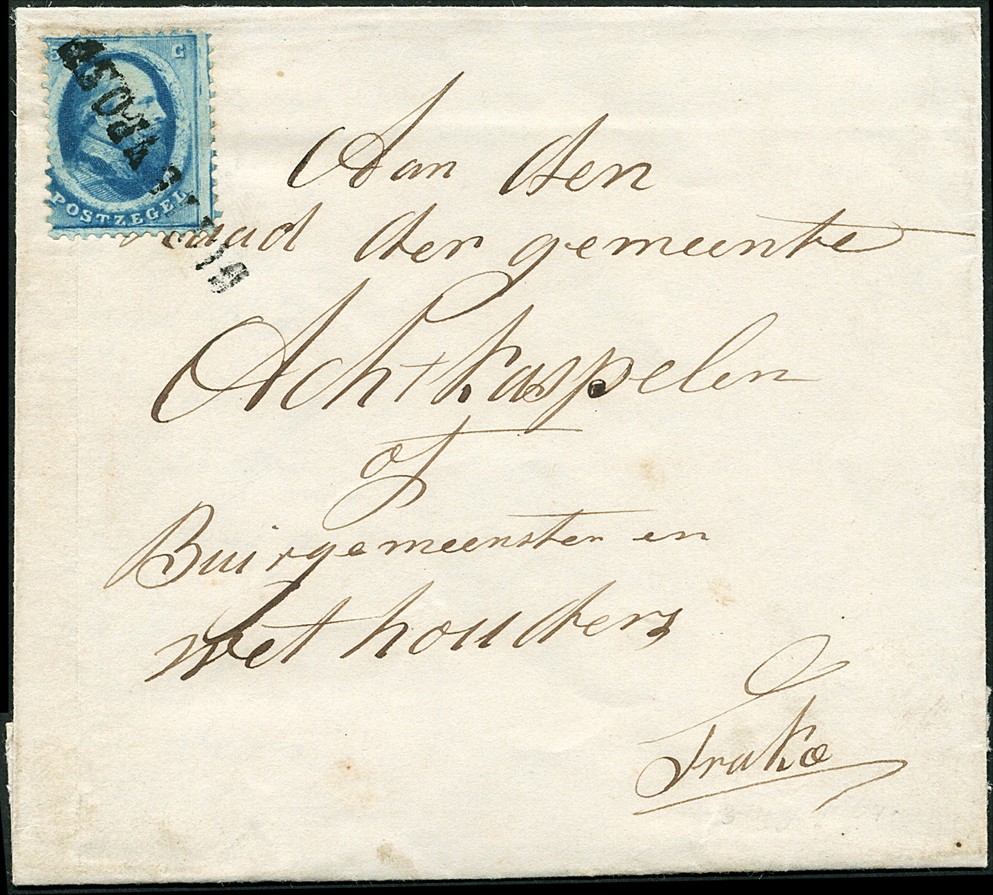 5 C
POSTZEGEL
Aan den
raad der gemeente
Achtkaspelen
of
Buirgemeenster en
wethouders
Frako